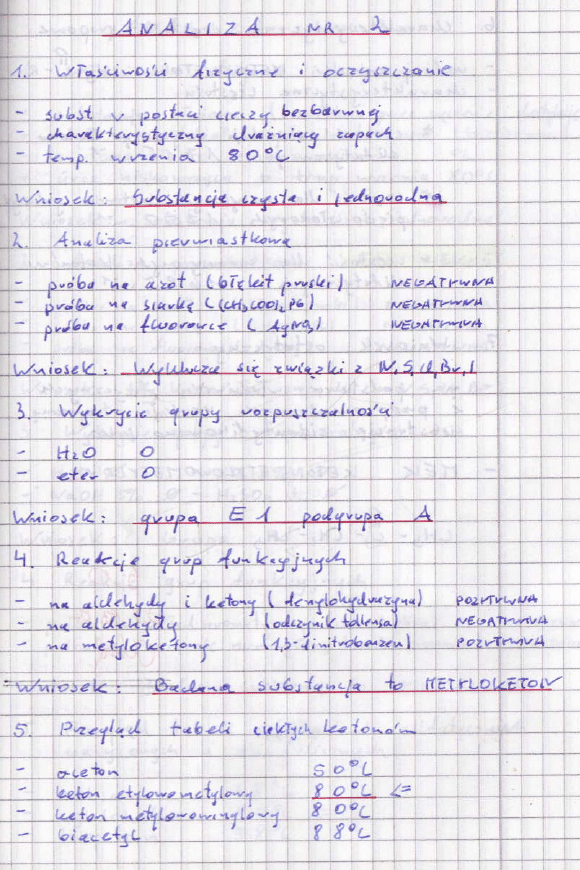 ANALIZA NR 2
1. Właściwości fizyczne i oczyszczanie
- subst w postaci cieczy bezbarwnej
- charakterystyczny drażniący zapach
- temp. wrzenia 80°C
Wniosek: Substancja czysta i jednorodna
2. Analiza pierwiastkowa
- próba na azot (błękit pruski) NEGATYWNA
- próba na siarkę ((CH3COO)2Pb) NEGATYWNA
- próba na fluorowce (AgNO3) NEGATYWNA
Wniosek: Wyklucza się związki z N, S, Cl, Br, I
3. Wykrycie grupy rozpuszczalności
- H2O O
- eter O
Wniosek: grupa E1 podgrupa A
4. Reakcje grup funkcyjnych
- na aldehydy i ketony (fenylohydrazyna) POZYTYWNA
- na aldehydy (odczynik tollensa) NEGATYWNA
- na metyloketony (1,3-dinitrobenzen) POZYTYWNA
Wniosek: Badana substancja to METYLOKETON
5. Przegląd tabeli ciekłych ketonów
- aceton 50°C
- keton etylowometylowy 80°C <=
- keton metylowowinylowy 80°C
- biacetyl 88°C